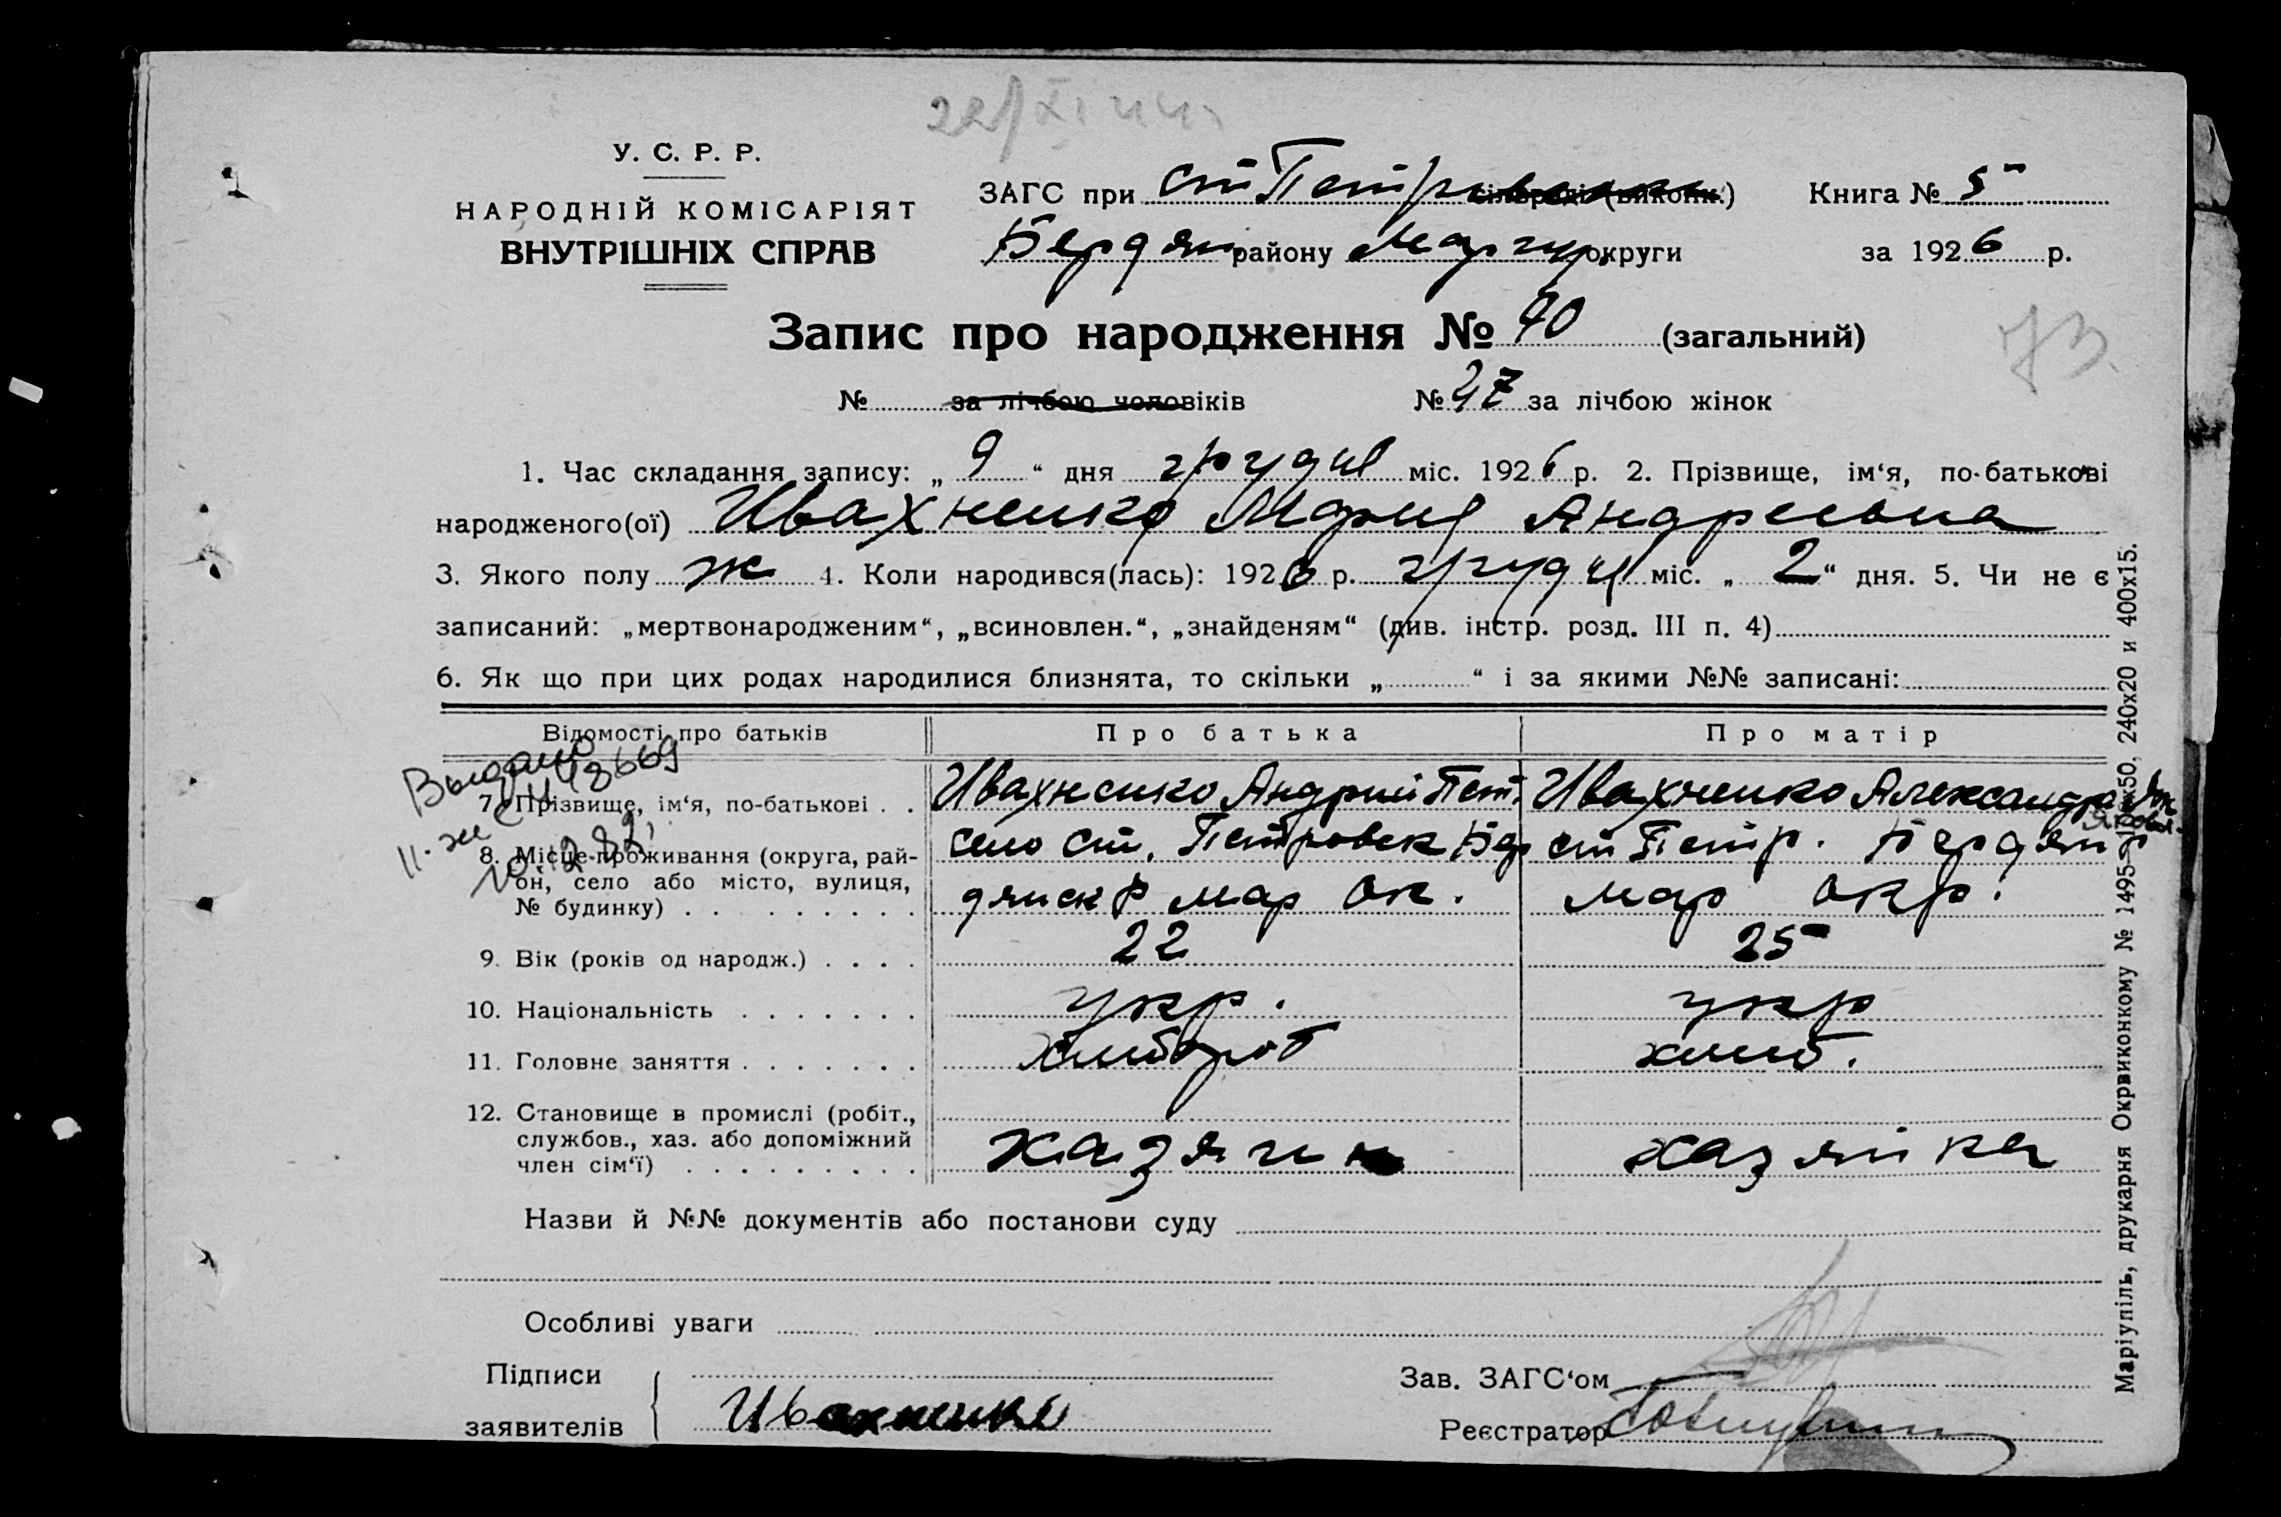 У. С. Р. Р.
НАРОДНІЙ КОМІСАРІЯТ
ВНУТРІШНІХ СПРАВ
ЗАГС при ст Петровськ сільраді (виконк.) Книга № 5
Бердян району Маріуп округи за 1926 р.
Запис про народження № 40 (загальний)
73.
№ за лічбою чоловіків № 27 за лічбою жінок
1. Час складання запису: „ 9 “ дня грудня міс. 1926 р. 2. Прізвище, ім‘я, по-батькові
народженого(ої) Ивахненко Мария Андреевна
3. Якого полу ж 4. Коли народився(лась): 1926 р. грудня міс. „ 2 “ дня. 5. Чи не є
записаний: „мертвонародженим“, „всиновлен.“, „знайденям“ (див. інстр. розд. III п. 4)
6. Як що при цих родах народилися близнята, то скільки „ “ і за якими №№ записані:
Відомості про батьків Про батька Про матір
Выдано
7. Прізвище, ім‘я, по-батькові . . Ивахненко Андрий Пет. Ивахненко Александра Як
8. Місце проживання (округа, рай- село ст. Петровск Бер ст Петр. Бердян р
он, село або місто, вулиця, дянск р мар ок. мар окр.
№ будинку) . . . . . . . . .
9. Вік (років од народж.) . . . . 22 25
10. Національність . . . . . . . укр. укр
11. Головне заняття . . . . . . . хлибороб хлиб.
12. Становище в промислі (робіт.,
службов., хаз. або допоміжний хазяин хазяйка
член сім‘ї) . . . . . . . . .
Назви й №№ документів або постанови суду
Особливі уваги
Підписи Зав. ЗАГС‘ом
заявителів Ивахненко Реєстратор
Маріупіль, друкарня Окрвиконкому № 1495 50, 240x20 и 400x15.